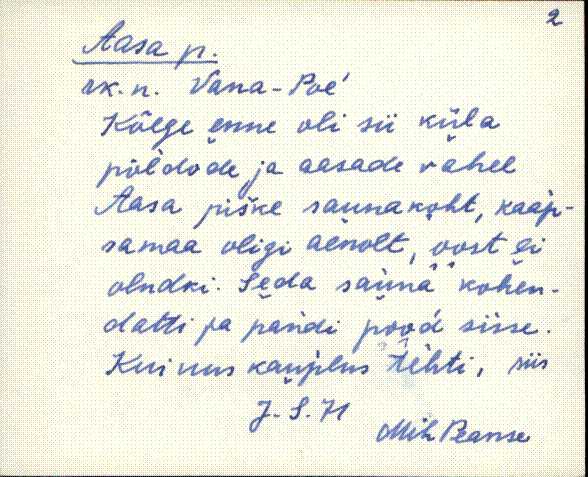 2
Aasa p.
rk. n. Vana-Poe'
Kõege enne oli sii küla
põldode ja aasade vahel
Aasa piške saunakoht, kaap-
samaa oligi aenolt, oost ei
olndki. Seda sauna kohen-
datti ja pandi pood sisse.
Kui uus kauplus tehti, siis
J. S. 71